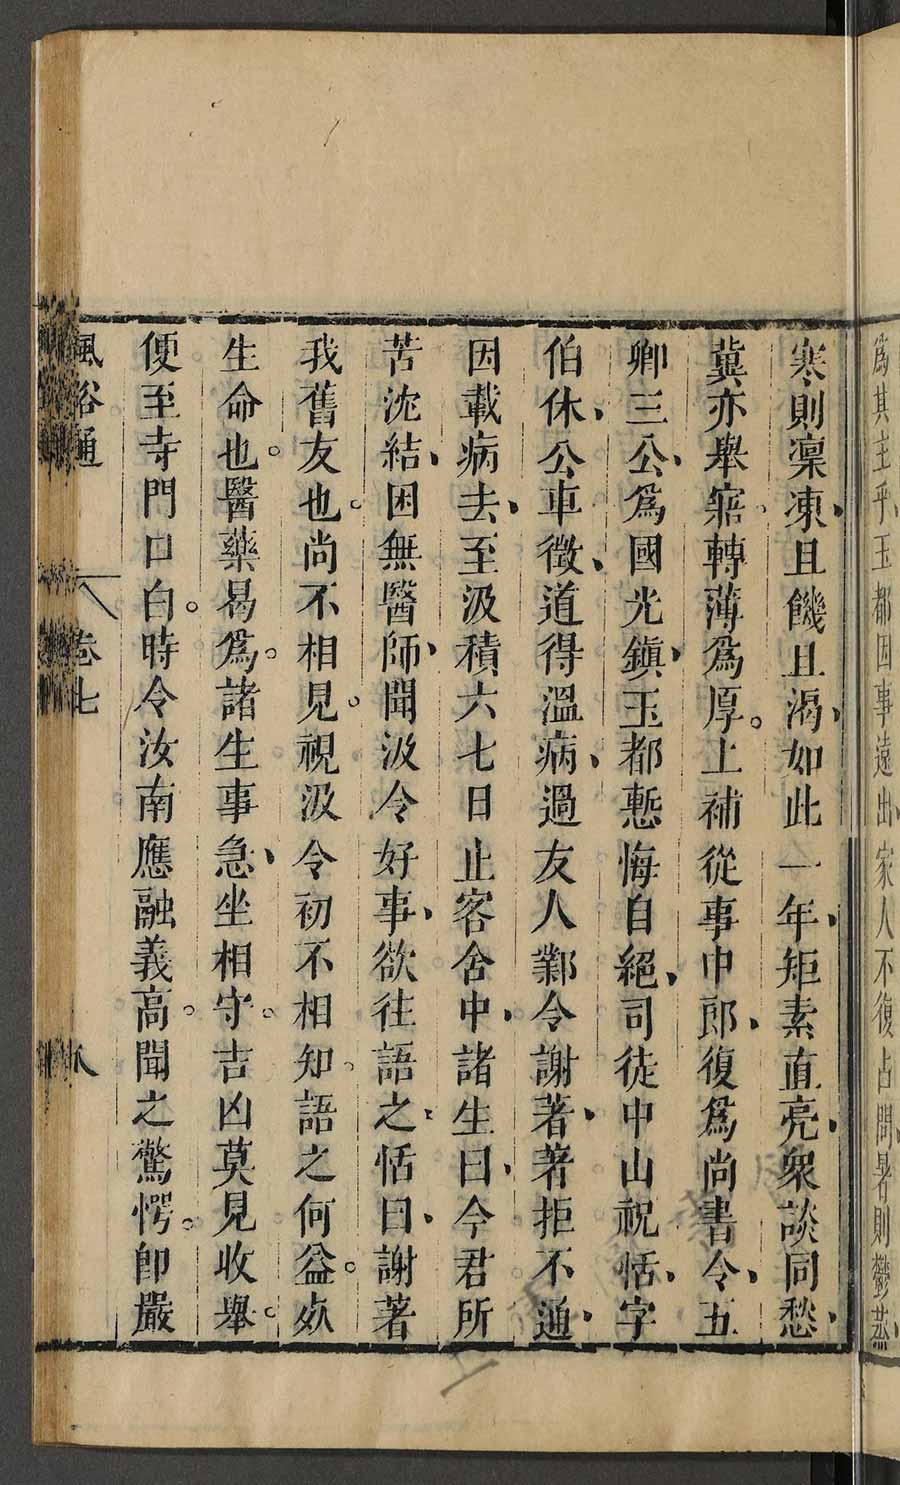 爲其主乎玉都因事遠出家人不復占問暑則鬱蒸
寒則凜凍、且饑且渴、如此一年、矩素直亮、衆談同愁、
冀亦舉寤轉薄爲厚。上補從事中郎、復爲尚書令、五
卿三公、爲國光鎮、玉都慙悔自絕、司徒中山祝恬、字
伯休、公車徵、道得溫病、過友人鄴令謝著、著拒不通、
因載病去、至汲積六七日止客舍中、諸生曰、今君所
苦沈結、困無醫師、聞汲令好事、欲往語之、恬曰、謝著
我舊友也。尚不相見。視汲令初不相知。語之何益。死
生命也。醫藥曷爲。諸生事急、坐相守。吉凶莫見收舉。
便至寺門口白。時令汝南應融義高。聞之驚愕。卽嚴
風俗通
卷七
八